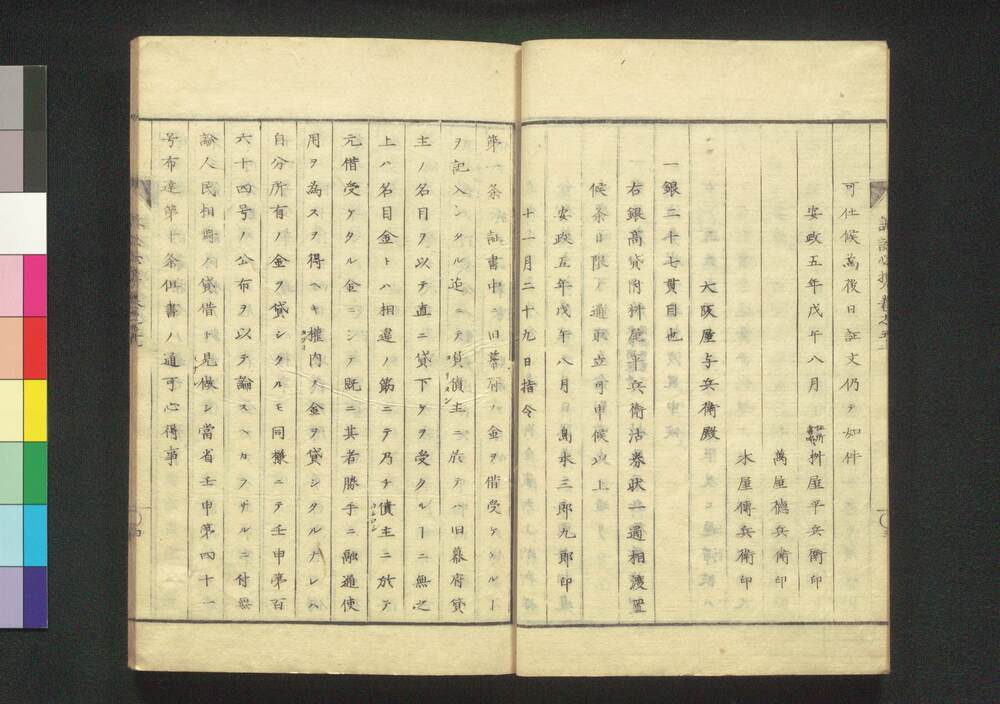 可仕候為後日証文仍テ如件
安政五年戊午八月
桝屋平兵衛印
萬屋徳兵衛印
木屋傳兵衛印
大阪屋与兵衛殿
一銀二十七貫目也
右銀高貸附桝屋平兵衛沽券状一通相渡置
候条日限ノ通取立可申候以上
安政五年戊午八月 島本三郎九郎印
十一月二十九日指令
第一条証書中ニ旧幕府ノ金ヲ借受ケタルヿ
ヲ記入シタル迄ニテ負債主ニ於テハ旧幕府貸
主ノ名目ヲ以テ直ニ貸下ケヲ受クルヿニ無之
上ハ名目金トハ相違ノ筋ニテ乃チ債主ニ於テ
元借受ケタル金ニシテ既ニ其者勝手ニ融通使
用ヲ為スヲ得ヘキ権内ノ金ヲ貸シタルナレハ
自分所有ノ金ヲ貸シタルモ同様ニテ壬申第百
六十四号ノ公布ヲ以テ論スヘカラサルニ付無
論人民相対ノ貸借ト見做シ當省壬申第四十一
号布達第十条但書ノ通可心得事